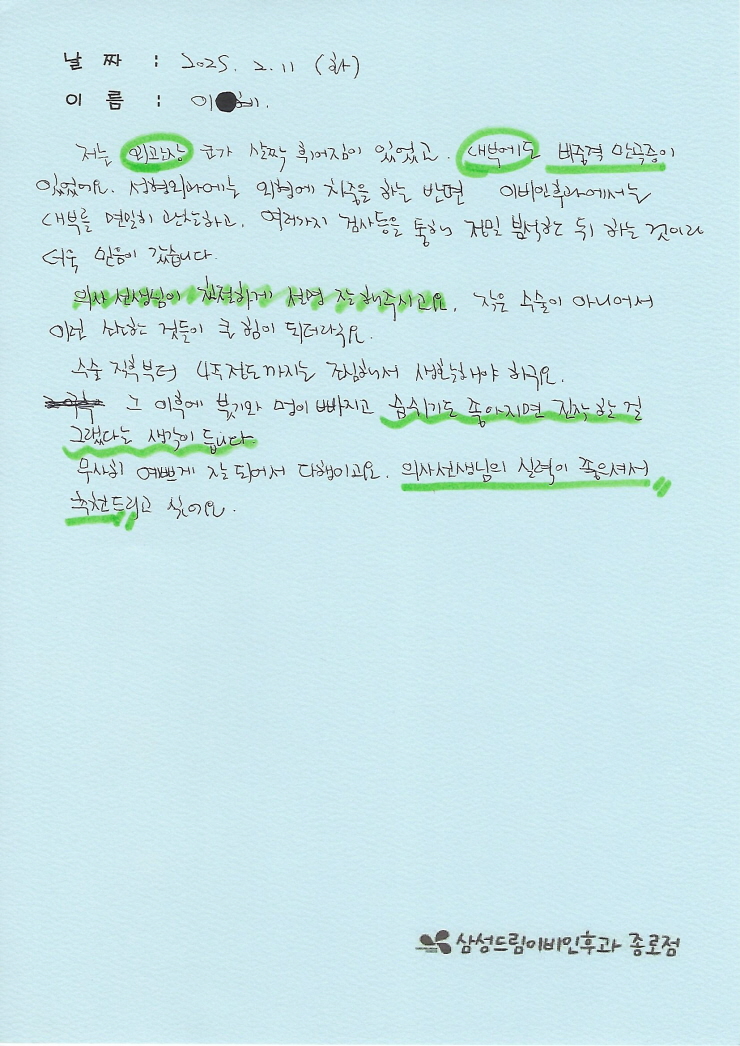 날 짜 : 2025. 2. 11 (화)
이 름 : 이
저는 외관상 코가 살짝 휘어짐이 있었고, 내부에도 비중격 만곡증이
있었어요. 성형외과에는 외형에 치중을 하는 반면 이비인후과에서는
내부를 면밀히 관찰하고, 여러가지 검사등을 통해 정밀 분석한 뒤 하는 것이라
더욱 믿음이 갔습니다.
의사 선생님이 친절하게 설명 잘 해주시고요, 작은 수술이 아니어서
이런 사소한 것들이 큰 힘이 되더라구요.
수술 직후부터 4주정도까지는 조심해서 생활해야 하구요.
그 이후에 붓기와 멍이 빠지고 숨쉬기도 좋아지면 진작 하는 걸
그랬다는 생각이 듭니다.
무사히 예쁘게 잘 되어서 다행이고요. 의사선생님의 실력이 좋으셔서
추천드리고 싶어요.
삼성드림이비인후과 종로점